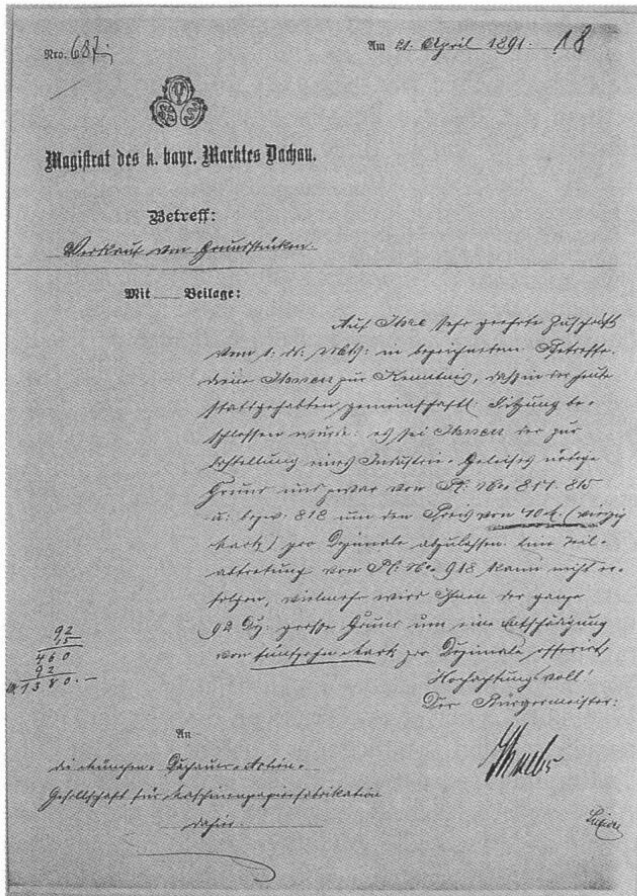 Nro. 687.
Am 21. April 1891. 18
Magistrat des k. bayr. Marktes Dachau.
Betreff:
Verkauf von Grundstücken.
Mit Beilage:
Auf Ihre sehr geehrte Zuschrift
vom 1. ds. Mts. in bezeichnetem Betreffe
diene Ihnen zur Kenntnis, daß in der heute
stattgehabten gemeinschaftl. Sitzung be-
schlossen wurde: es sei Ihnen der zur
Erstellung eines Industrie-Geleises nötige
Grund und zwar von Pl. No. 815
u. bezw. 818 um den Preis von 40 M. (vierzig
Mark) pro Dezimale abzulassen. Eine Teil-
abtretung von Pl. No. 918 kann nicht er-
folgen, vielmehr wird Ihnen der ganze
92 Dez. große Grund um eine Entschädigung
von fünfzehn Mark pro Dezimale offerirt.
Hochachtungsvoll!
Der Bürgermeister:
92
15
460
92
M 1380.—
An
die München-Dachauer-Actien-
Gesellschaft für Maschinenpapierfabrikation
dahier.